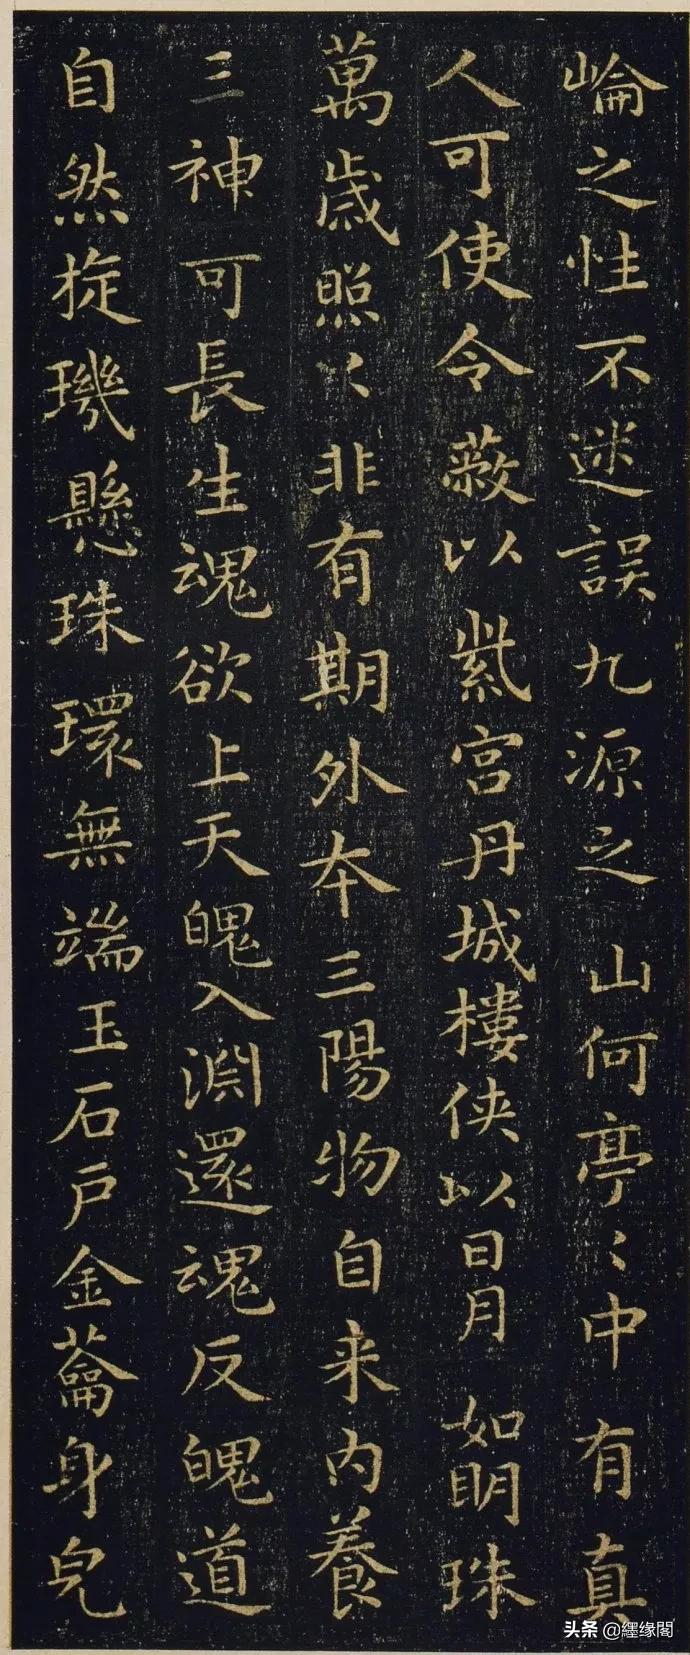 崘之性不迷誤九源之山何亭〻中有真
人可使令蔽以紫宮丹城樓俠以日月如明珠
萬歲照〻非有期外本三陽物自来内養
三神可長生魂欲上天魄入淵還魂反魄道
自然旋璣懸珠環無端玉石戶金蘥身皃
头条 @纒缘閣